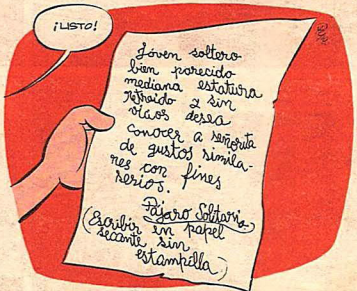 ¡LISTO!
Jóven soltero
bien parecido
mediana estatura
retraído y sin
vicios desea
conocer a señorita
de gustos simila-
res con fines
serios.
Pájaro Solitario
(Escribir en papel
secante sin
estampilla.)